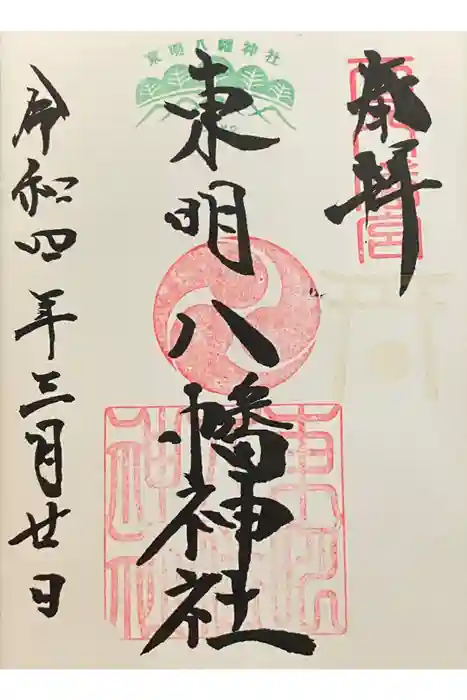 奉拝
東明八幡神社
東明八幡神社
令和四年三月廿日